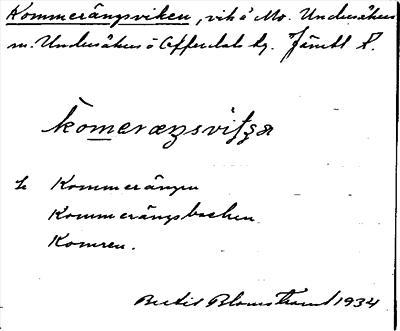 Kommerängsviken, vik å Mo. Undersåkers
m. Undersåkers o Offerdals tg. Jämtl l.
komeræŋsvitʂa
L Kommerängen
Kommerängsbacken
Komren.
Bertil Blomstrand 1934